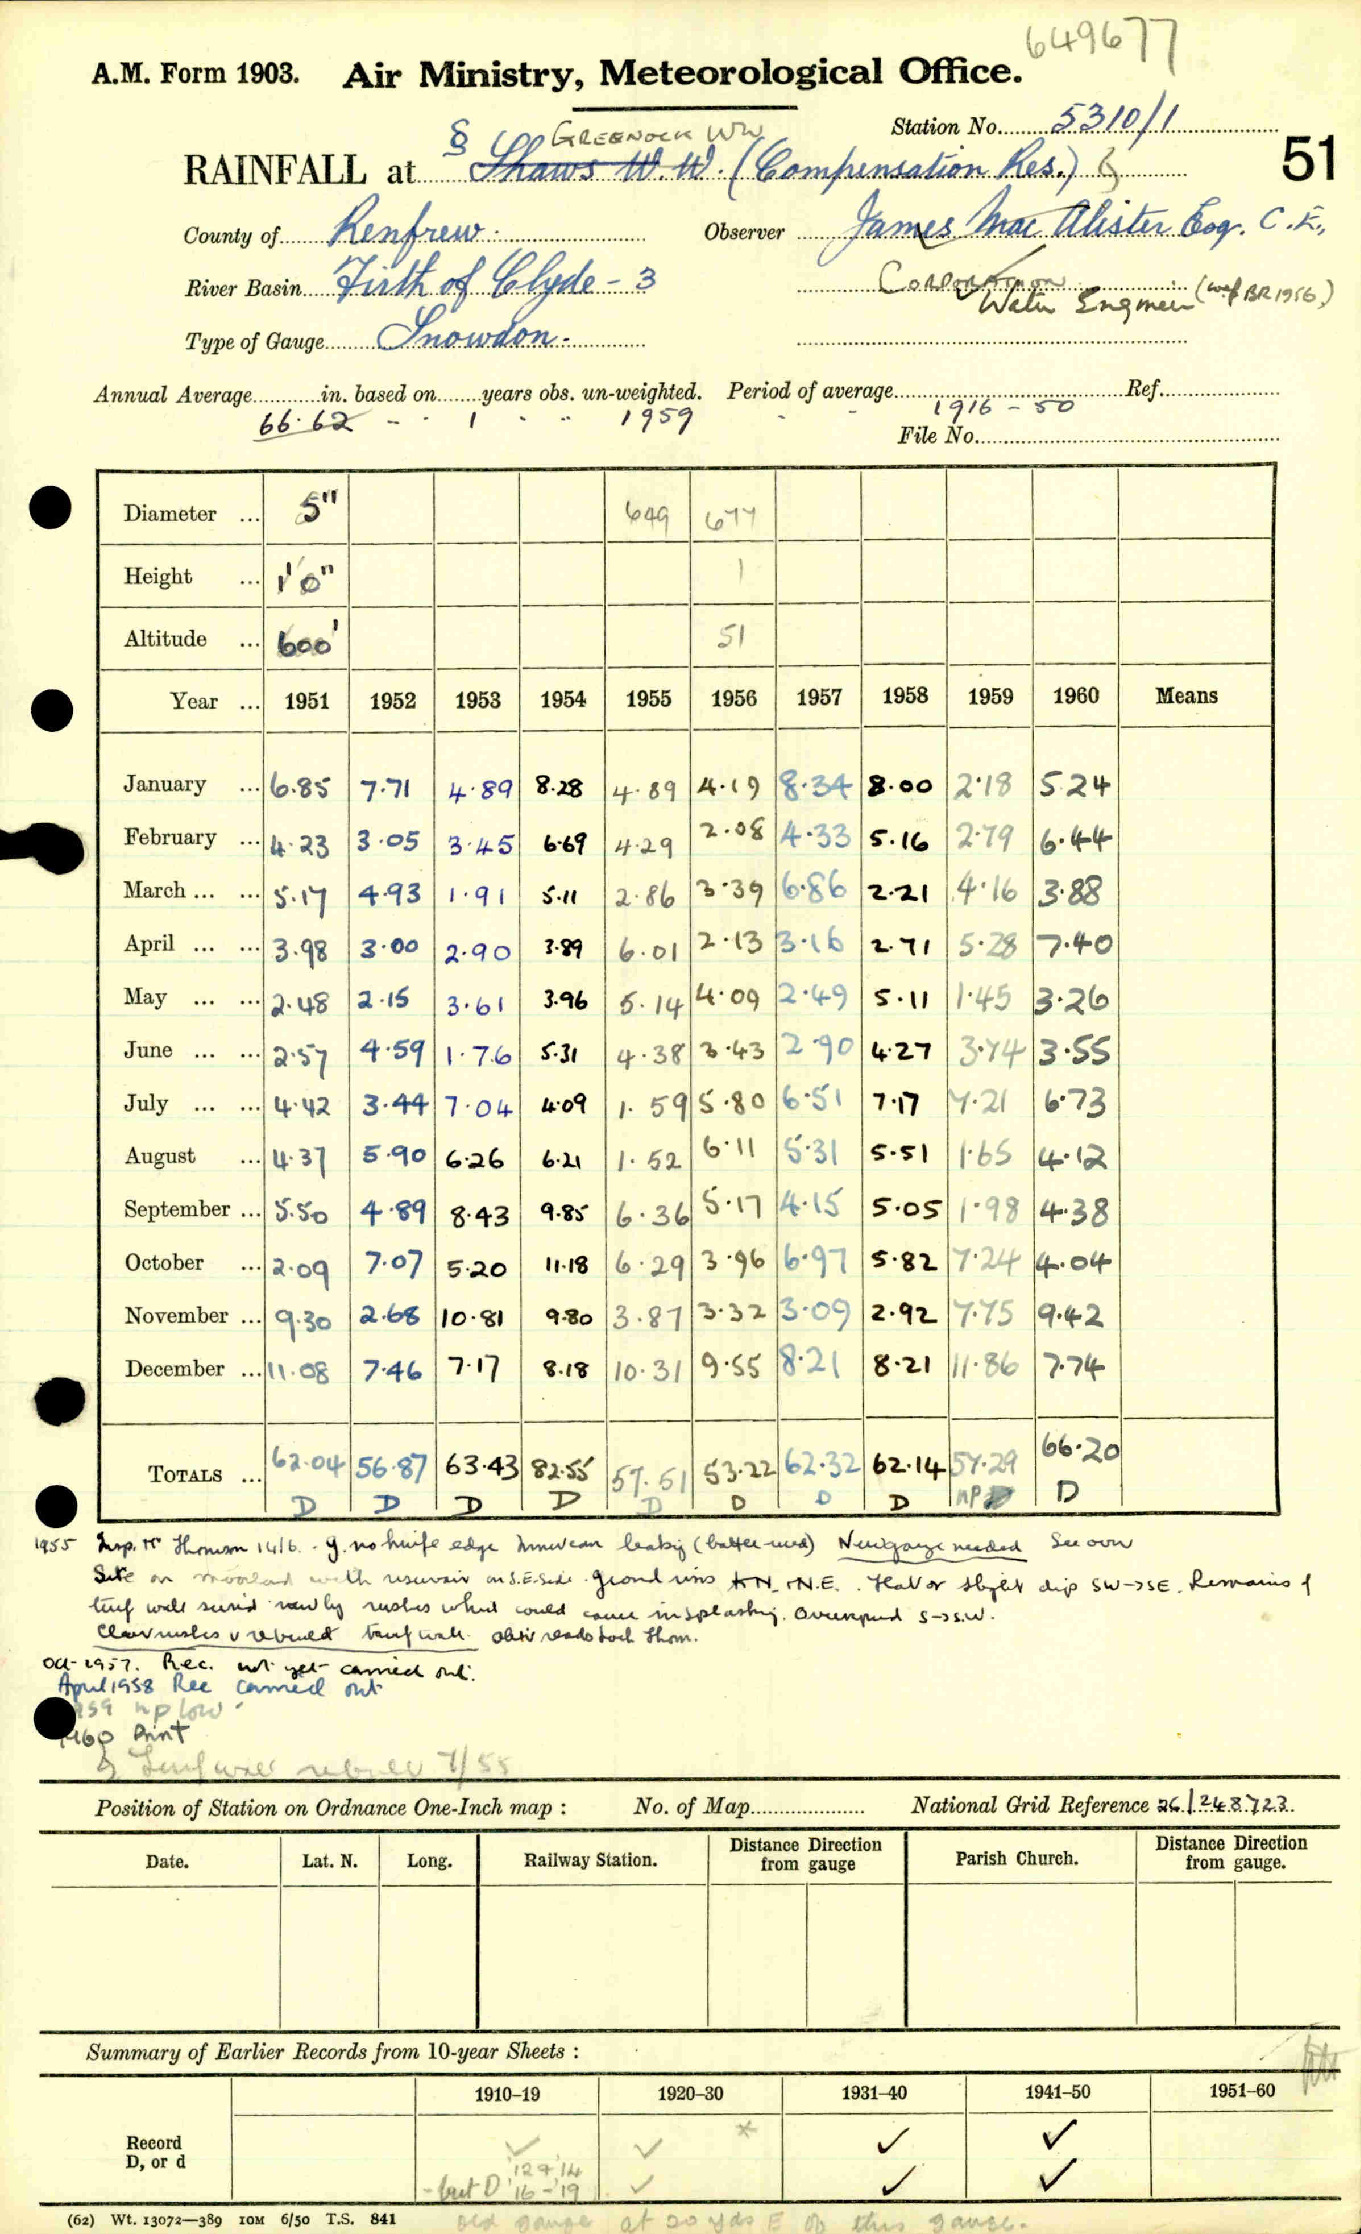 649677
A.M. Form 1903. Air Ministry, Meteorological Office.
Station No. 5310/1
51
GREENOCK WW
RAINFALL at § Shaws W.W. (Compensation Res.)
County of Renfrew. Observer James Mac Alister Esq. C.E.,
River Basin Firth of Clyde - 3 CORPORATION
Water Engineer (wef BR 1956)
Type of Gauge Snowdon.
Annual Average in. based on years obs. un-weighted. Period of average Ref.
66.62 1 1959 1916 - 50
File No.
Diameter ... 5" 649 677
Height ... 1'0" 1
Altitude ... 600' 51
Year ... 1951 1952 1953 1954 1955 1956 1957 1958 1959 1960 Means
January ... 6.85 7.71 4.89 8.28 4.89 4.19 8.34 8.00 2.18 5.24
February ... 4.23 3.05 3.45 6.69 4.29 2.08 4.33 5.16 2.79 6.44
March ... ... 5.17 4.93 1.91 5.11 2.86 3.39 6.86 2.21 4.16 3.88
April ... ... 3.98 3.00 2.90 3.89 6.01 2.13 3.16 2.71 5.28 7.40
May ... ... 2.48 2.15 3.61 3.96 5.14 4.09 2.49 5.11 1.45 3.26
June ... ... 2.57 4.59 1.76 5.31 4.38 3.43 2.90 4.27 3.74 3.55
July ... ... 4.42 3.44 7.04 4.09 1.59 5.80 6.51 7.17 7.21 6.73
August ... 4.37 5.90 6.26 6.21 1.52 6.11 5.31 5.51 1.65 4.12
September ... 5.50 4.89 8.43 9.85 6.36 5.17 4.15 5.05 1.98 4.38
October ... 2.09 7.07 5.20 11.18 6.29 3.96 6.97 5.82 7.24 4.04
November ... 9.30 2.68 10.81 9.80 3.87 3.32 3.09 2.92 7.75 9.42
December ... 11.08 7.46 7.17 8.18 10.31 9.55 8.21 8.21 11.86 7.74
TOTALS ... 62.04 56.87 63.43 82.55 57.51 53.22 62.32 62.14 57.29 66.20
D D D D D D D D MP D D
1955 Insp. Mr Thomson 14/6. g. no knife edge leaky New gauge needed See over
Site on moorland with reservoir on S.E. side. Ground rises N.E. Flat or slight dip SW->SE. Remains of
turf wall by rushes which could cause insplashing. S->SW.
Clear rushes & rebuild turf wall. obsr reads Loch Thom.
Oct-1957. Rec. not yet carried out.
April 1958 Rec carried out
959 mp low
1960 Print
Turf wall rebuilt 7/55
Position of Station on Ordnance One-Inch map : No. of Map National Grid Reference 26/248723.
Date. Lat. N. Long. Railway Station. Distance from gauge Direction Parish Church. Distance from gauge. Direction
Summary of Earlier Records from 10-year Sheets :
1910–19 1920–30 1931–40 1941–50 1951–60
Record ✓ ✓ * ✓ ✓
D, or d '12 + '14
- but D '16 - '19 ✓ ✓ ✓
(62) Wt. 13072—389 10M 6/50 T.S. 841
old gauge at 20 yds E of this gauge.